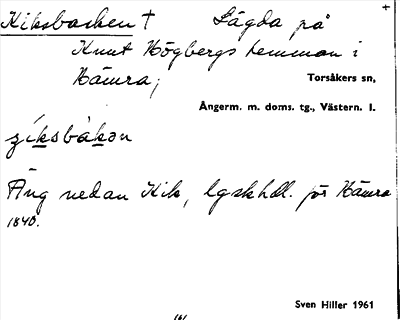 Kiksbacken † Lägda på
Knut Högbergs hemman i
Hämra;
Torsåkers sn,
Ångerm. m. doms. tg., Västern. l.
zíksbàkən
Äng nedan Kik, lgskhdl. för Hämra
1840.
Sven Hiller 1961